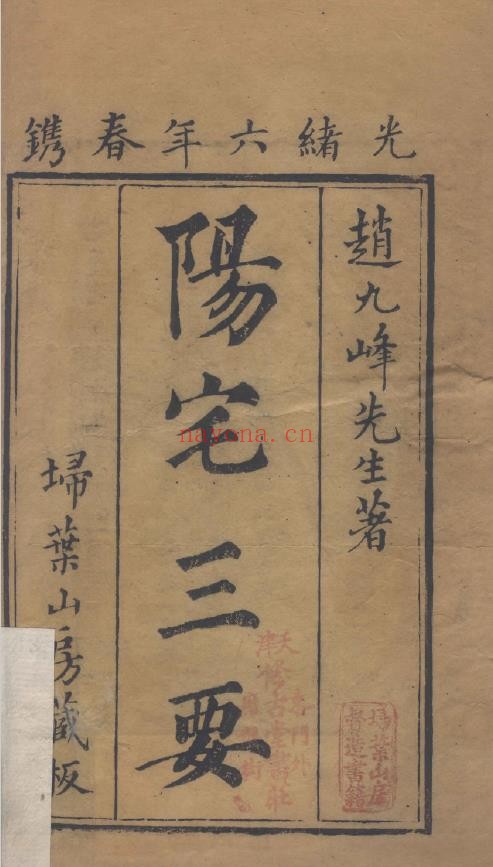 光緒六年春鐫
趙九峰先生著
陽宅三要
埽葉山房藏板
埽葉山房
督造書籍
天津
門外
古堂書莊
nayona.cn